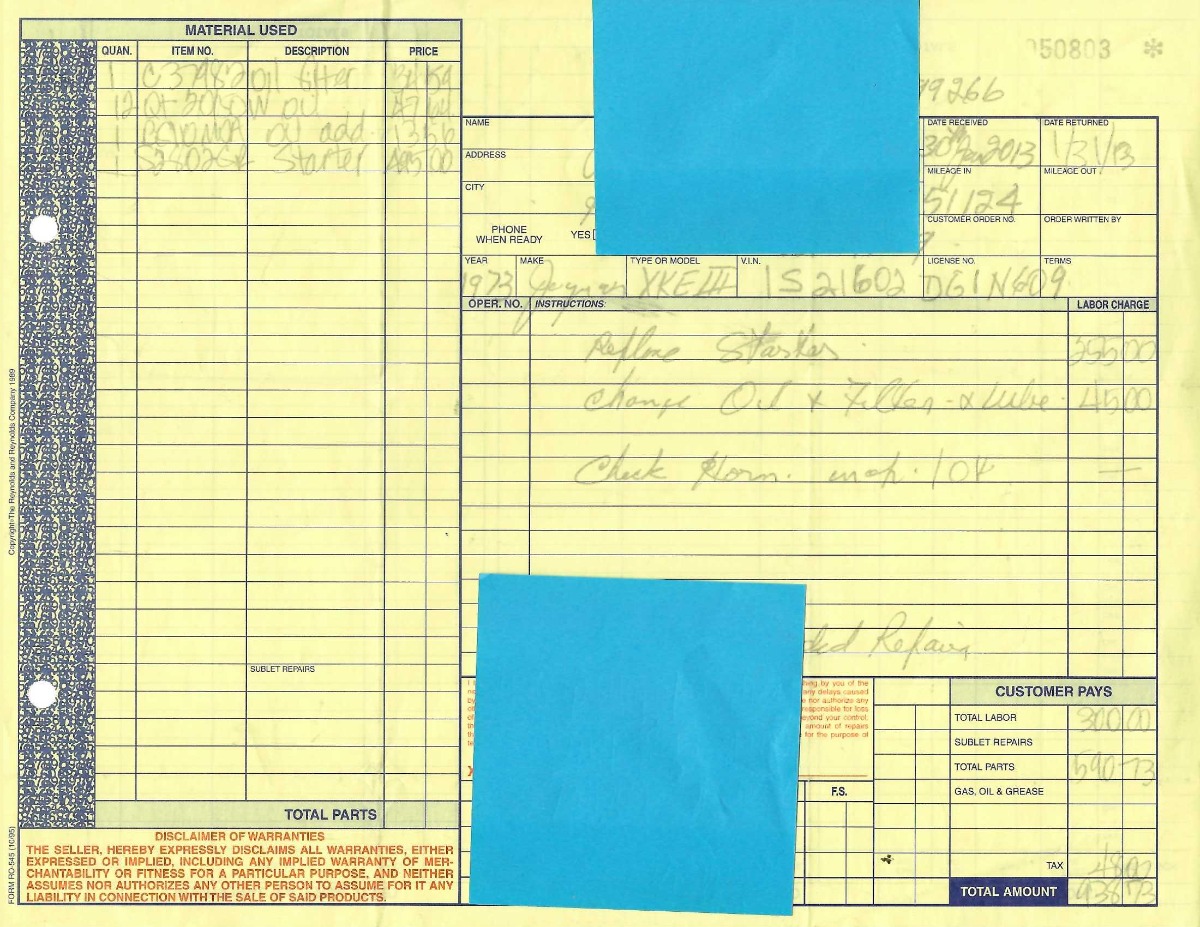 MATERIAL USED
QUAN. ITEM NO. DESCRIPTION PRICE
1 C37982 oil filter 59
12 Qt 20/50W oil
1 oil add. 1356
1 Starter 495 00
SUBLET REPAIRS
TOTAL PARTS
DISCLAIMER OF WARRANTIES
THE SELLER, HEREBY EXPRESSLY DISCLAIMS ALL WARRANTIES, EITHER
EXPRESSED OR IMPLIED, INCLUDING ANY IMPLIED WARRANTY OF MER-
CHANTABILITY OR FITNESS FOR A PARTICULAR PURPOSE, AND NEITHER
ASSUMES NOR AUTHORIZES ANY OTHER PERSON TO ASSUME FOR IT ANY
LIABILITY IN CONNECTION WITH THE SALE OF SAID PRODUCTS.
FORM RO-545 (10/95)
Copyright The Reynolds and Reynolds Company 1989
050803 *
79266
NAME
ADDRESS
CITY
PHONE
WHEN READY YES
DATE RECEIVED DATE RETURNED
30 Jan 2013 1/31/13
MILEAGE IN MILEAGE OUT
51124
CUSTOMER ORDER NO. ORDER WRITTEN BY
YEAR MAKE TYPE OR MODEL V.I.N. LICENSE NO. TERMS
1973 Jaguar XKE III 1S21602 DG1N609
OPER. NO. INSTRUCTIONS: LABOR CHARGE
Replace Starter 255 00
Change Oil & Filter - & Lube 45 00
Check Horn. —
ded Repairs
hing by you of the
any delays caused
e nor authorize any
responsible for loss
eyond your control,
amount of repairs
for the purpose of
X
F.S.
CUSTOMER PAYS
TOTAL LABOR 300 00
SUBLET REPAIRS
TOTAL PARTS 590 73
GAS, OIL & GREASE
TAX 48 00
TOTAL AMOUNT 938 73